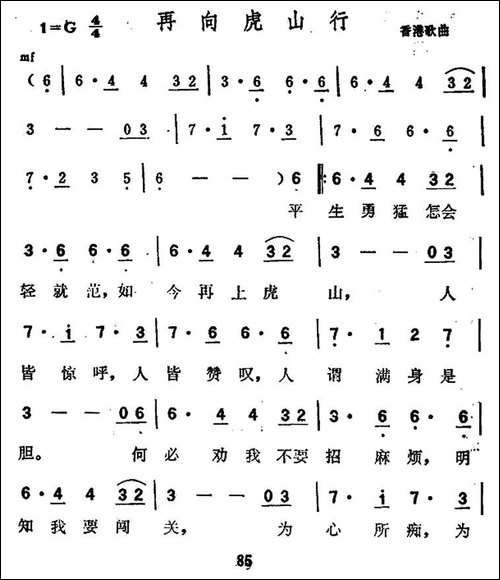 再向虎山行
1=G 4/4 香港歌曲
mf
( 6 | 6 · 4 4 32 | 3 · 6 6 · 6 | 6 · 4 4 32 |
3 — — 03 | 7 · i 7 · 3 | 7 · 6 6 · 6 |
7 · 2 3 5 | 6 — — ) 6 ‖: 6 · 4 4 32 |
平 生勇猛怎会
3 · 6 6 · 6 | 6 · 4 4 32 | 3 — — 03 |
轻就范,如 今再上虎 山, 人
7 · i 7 · 3 | 7 · 6 6 · 6 | 7 · 1 2 7 |
皆惊呼,人 皆赞叹,人 谓满身是
3 — — 06 | 6 · 4 4 32 | 3 · 6 6 · 6 |
胆。 何 必劝我不要 招麻烦,明
6 · 4 4 32 | 3 — — 03 | 7 · i 7 · 3 |
知我要闯 关, 为 心所痴,为
85